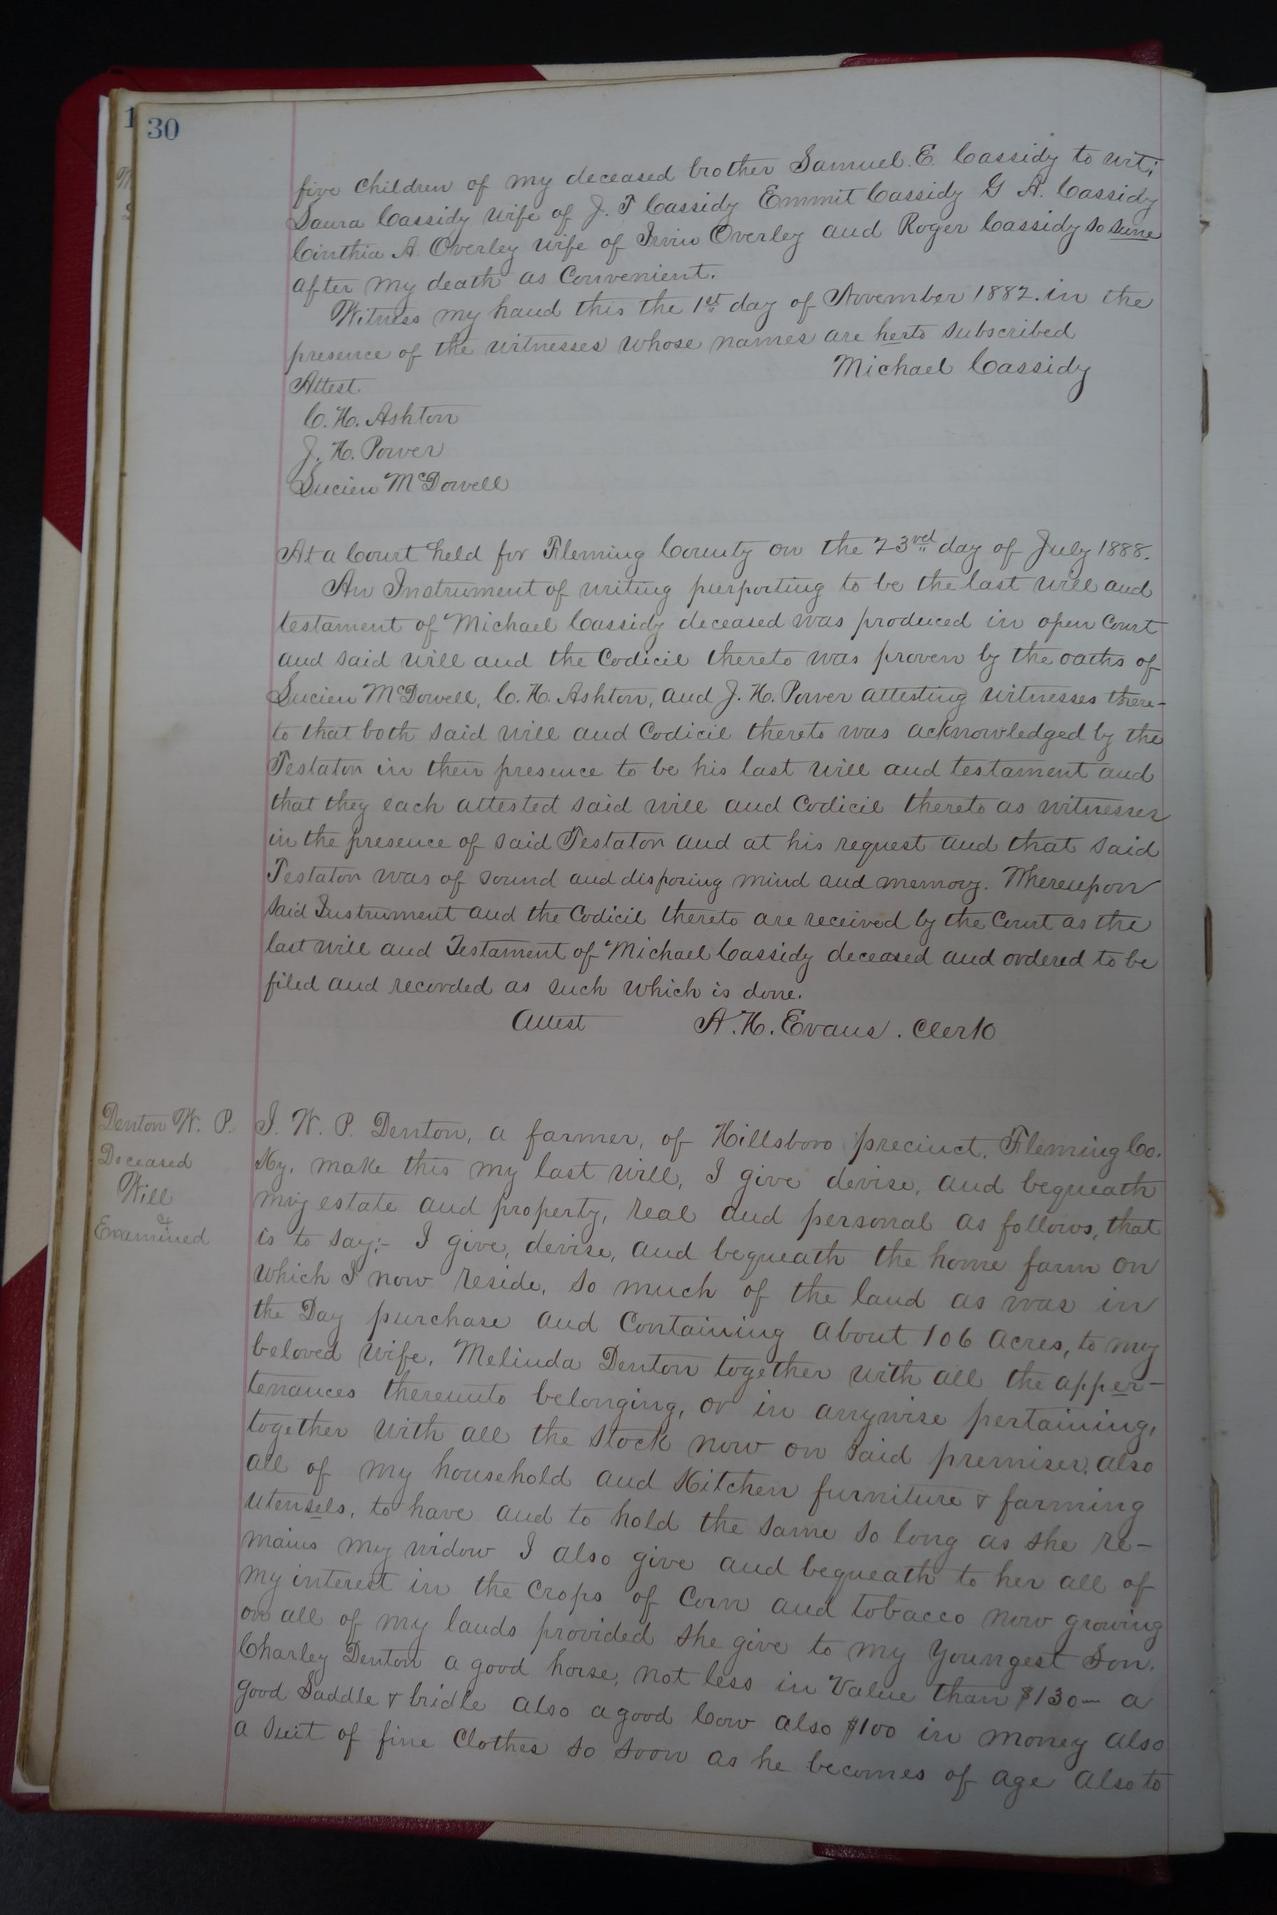 30
five children of my deceased brother Samuel. E. Cassidy to wit;
Laura Cassidy wife of J. T Cassidy Emmit Cassidy G A. Cassidy
Cinthia A. Overley wife of Irvin Overley and Roger Cassidy so sune
after my death as Convenient.
Witness my hand this the 1st day of November 1882. in the
presence of the witnesses whose names are herto subscribed
Michael Cassidy
Attest
C. H. Ashton
J. H. Power
Lucien McDowell
At a Court held for Fleming County on the 23rd day of July 1888.
An Instrument of writing purporting to be the last will and
testament of Michael Cassidy deceased was produced in open Court
and said will and the Codicil thereto was proven by the oaths of
Lucien McDowell, C. H. Ashton, and J. H. Power attesting witnesses there-
to that both said will and Codicil thereto was acknowledged by the
Testator in their presence to be his last will and testament and
that they each attested said will and Codicil thereto as witnesses
in the presence of said Testator and at his request and that said
Testator was of sound and disposing mind and memory. Whereupon
said Instrument and the Codicil thereto are received by the Court as the
last will and Testament of Michael Cassidy deceased and ordered to be
filed and recorded as such which is done.
Attest A. H. Evans. Clerk
Denton W. P.
Deceased
Will
Examined
I. W. P. Denton, a farmer, of Hillsboro precinct, Fleming Co.
Ky, make this my last will, I give devise, and bequeath
my estate and property, real and personal as follows, that
is to say;- I give, devise, and bequeath the home farm on
which I now reside, so much of the land as was in
the Day purchase and Containing about 106 acres, to my
beloved wife, Melinda Denton together with all the apper-
tenances thereunto belonging, or in anywise pertaining,
together with all the stock now on said premises, also
all of my household and Kitchen furniture & farming
utensels, to have and to hold the same so long as she re-
mains my widow I also give and bequeath to her all of
my interest in the crops of Corn and tobacco now growing
on all of my lands provided she give to my Youngest Son.
Charley Denton a good horse, not less in Value than $130— a
good Saddle & bridle also a good Cow also $100 in money also
a suit of fine Clothes so soon as he becomes of age also to